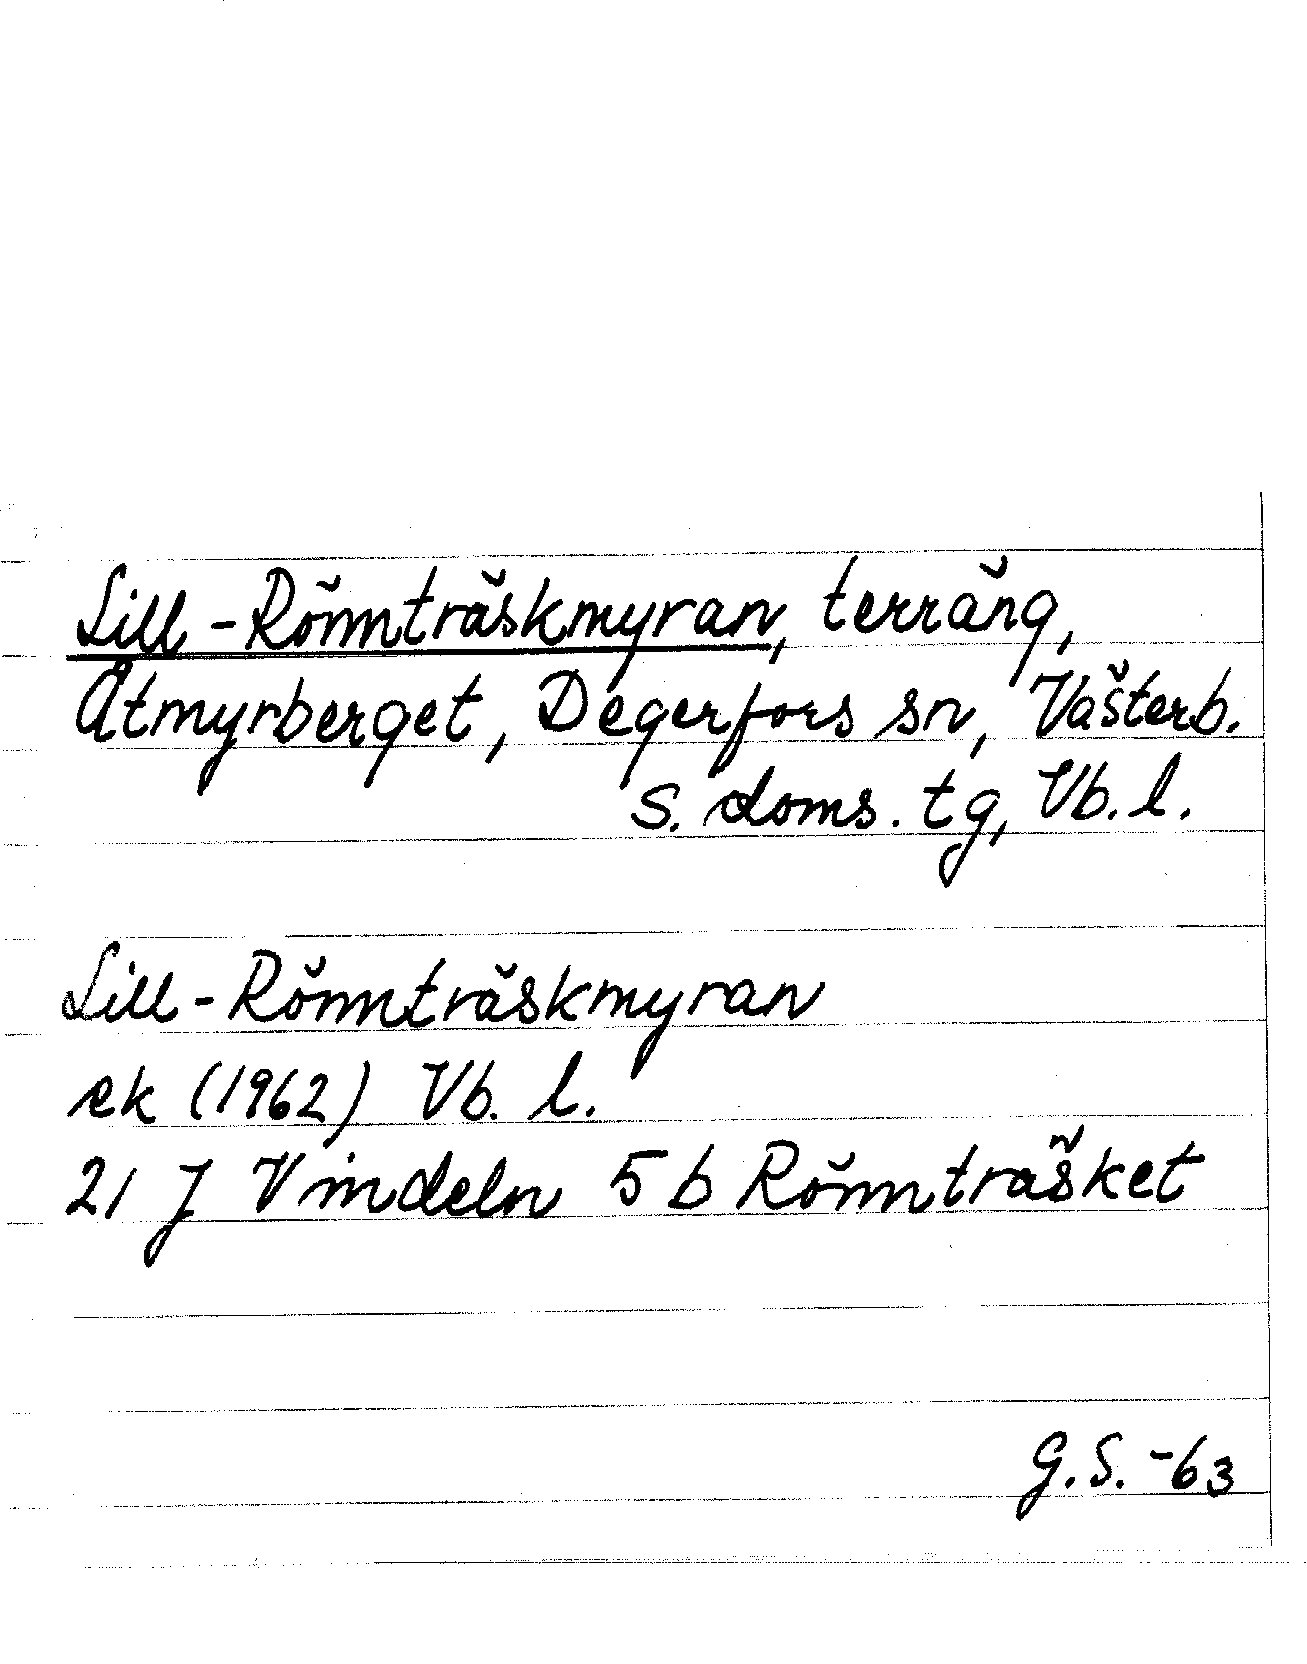 Lill-Rönnträskmyran, terräng,
Åtmyrberget, Degerfors sn, Västerb.
s. doms. tg, Vb. l.
Lill-Rönnträskmyran
ek (1962) Vb. l.
21 J Vindeln 5 b Rönnträsket
G.S. -63